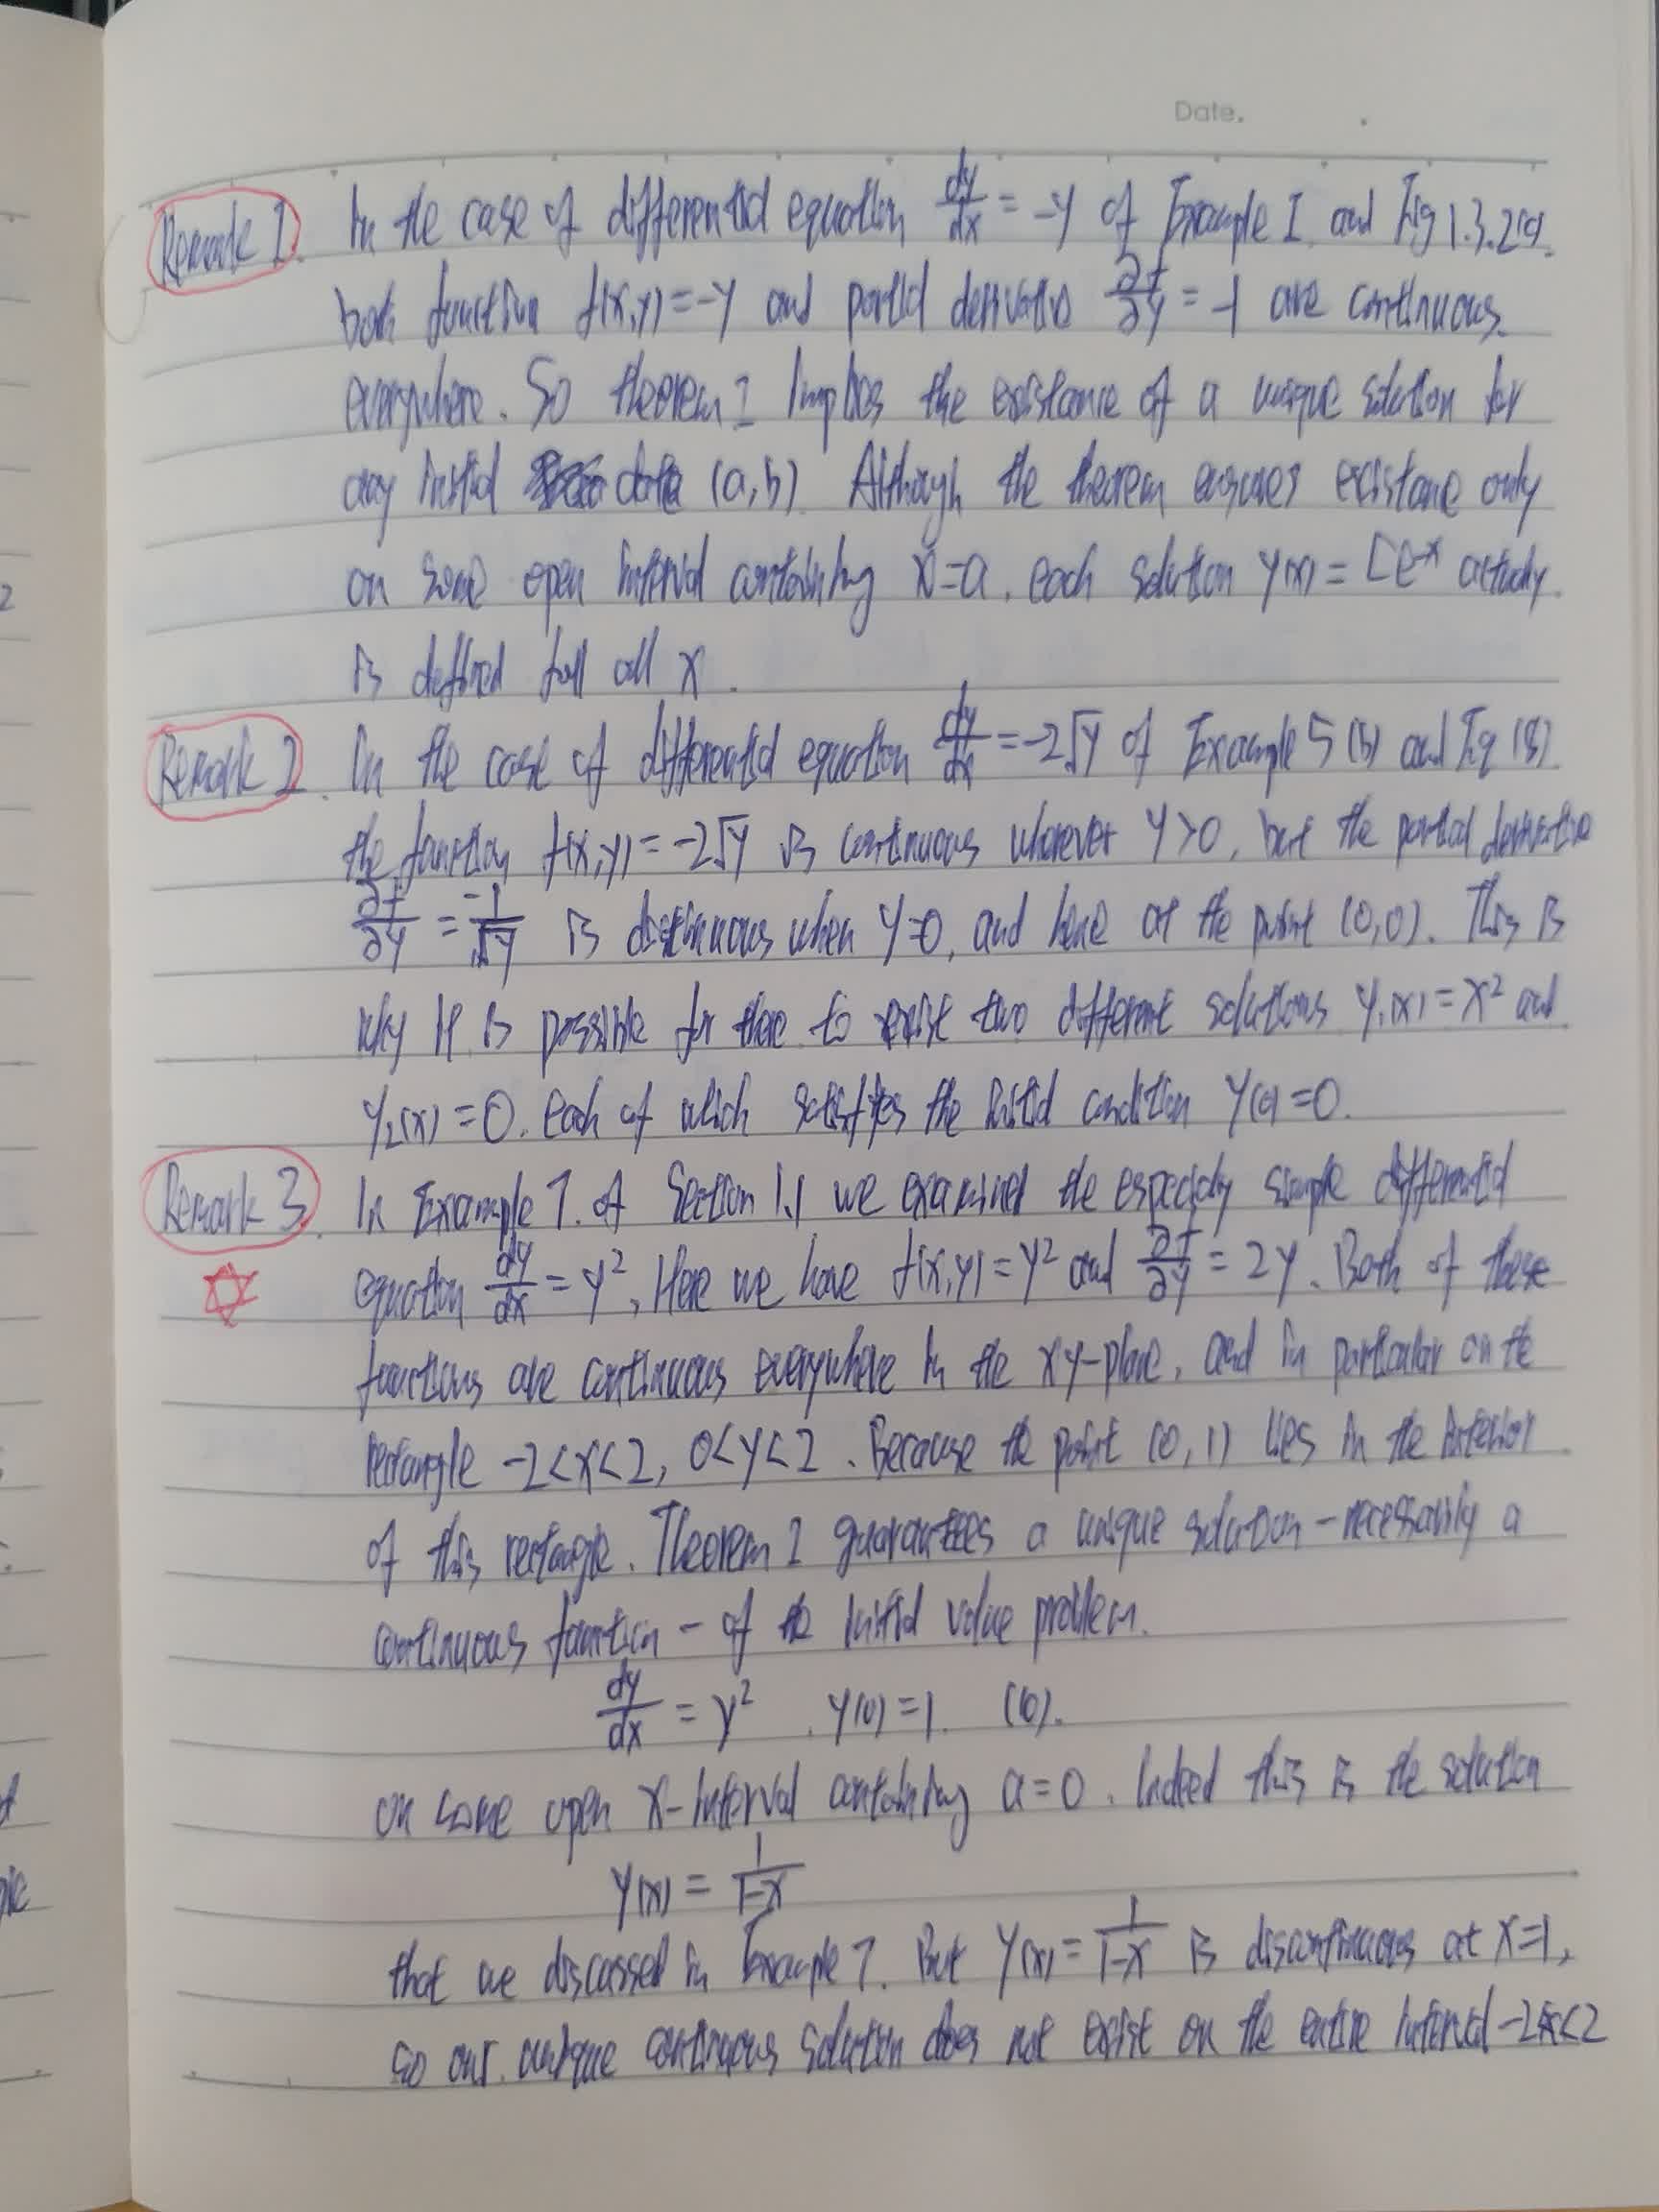 Date.
Remark 1. In the case of differential equation dy/dx = -y of Example 1 and Fig 1.3.2(a).
both function f(x,y) = -y and partial derivative ∂f/∂y = -1 are continuous.
everywhere. So theorem 1 implies the existance of a unique solution for
any initial data (a,b). Although the theorem ensures existance only
on some open interval containing x=a. each solution y(x) = Ce^-x actualy.
is defined foll all x.
Remark 2. In the case of differential equation dy/dx = -2√y of Example 5 (b) and Eq (8).
the function f(x,y) = -2√y is continuous wherever y>0, but the partial derivative
∂f/∂y = -1/√y is discontinuous when y=0, and hence at the point (0,0). This is
why it is possible for there to exist two different solutions y₁(x) = x² and
y₂(x) = 0. each of which satisfies the initial condition y(0) = 0.
Remark 3. In Example 7. of Section 1.1 we examined the especialy simple differential
equation dy/dx = y², Here we have f(x,y) = y² and ∂f/∂y = 2y. Both of these
functions are continuous everywhere in the xy-plane, and in particular on the
rectangle -2<x<2, 0<y<2. Because the point (0,1) lies in the interior
of this rectangle. Theorem 1 guarantees a unique solution - necessarily a
continuous function - of the initial value problem.
dy/dx = y². y(0) = 1. (10).
on some open x-interval containing a=0. Indeed this is the solution
y(x) = 1/1-x
that we discussed in Example 7. But y(x) = 1/1-x is discontinuous at x=1,
so our. unique continuous solution does not exist on the entire interval -2<x<2